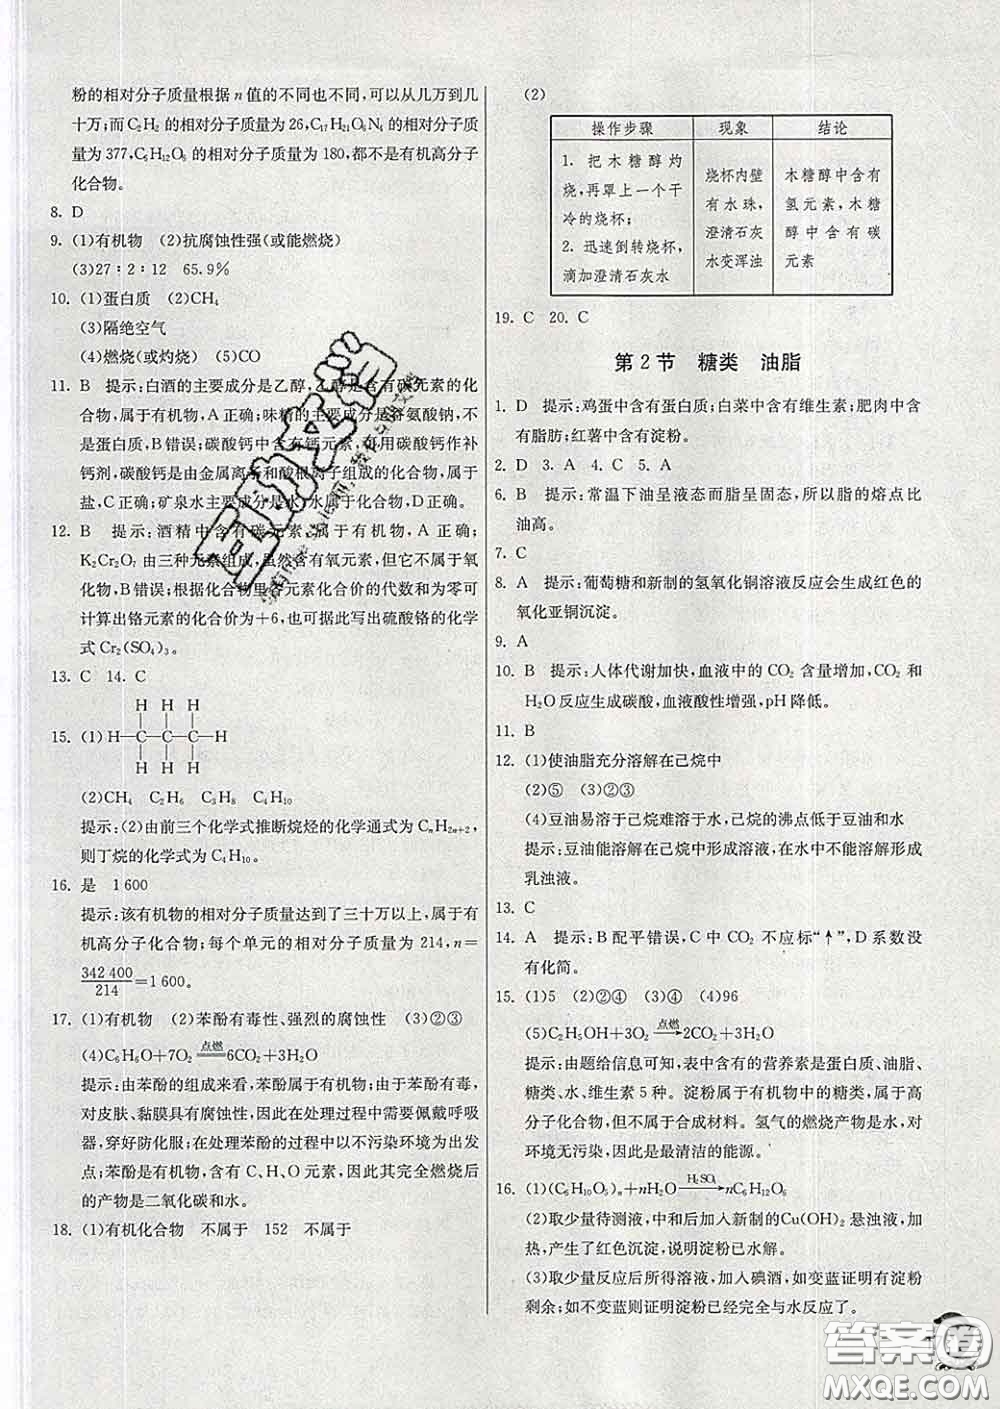 粉的相对分子质量根据 n 值的不同也不同,可以从几万到几
十万;而 C₂H₂ 的相对分子质量为 26,C₁₇H₂₁O₈N₄ 的相对分子质
量为 377,C₆H₁₂O₆ 的相对分子质量为 180,都不是有机高分子
化合物。
8. D
9. (1)有机物 (2)抗腐蚀性强(或能燃烧)
(3)27∶2∶12 65.9%
10. (1)蛋白质 (2)CH₄
(3)隔绝空气
(4)燃烧(或灼烧) (5)CO
11. B 提示:白酒的主要成分是乙醇,乙醇是含有碳元素的化
合物,属于有机物,A 正确;味精的主要成分是谷氨酸钠,不
是蛋白质,B 错误;碳酸钙中含有钙元素,可用碳酸钙作补
钙剂,碳酸钙是由金属离子和酸根离子组成的化合物,属于
盐,C 正确;矿泉水主要成分是水,水属于化合物,D 正确。
12. B 提示:酒精中含有碳元素,属于有机物,A 正确;
K₂Cr₂O₇ 由三种元素组成,虽然含有氧元素,但它不属于氧化
物,B 错误;根据化合物里各元素化合价的代数和为零可
计算出铬元素的化合价为+6,由此写出硫酸铬的化学
式 Cr₂(SO₄)₃。
13. C 14. C
H H H
15. (1)H—C—C—C—H
H H H
(2)CH₄ C₂H₆ C₃H₈ C₄H₁₀
提示:(2)由前三个化学式推断烷烃的化学通式为 CₙH₂ₙ₊₂,
则丁烷的化学式为 C₄H₁₀。
16. 是 1 600
提示:该有机物的相对分子质量达到了三十万以上,属于有
机高分子化合物;每个单元的相对分子质量为 214,n=
342 400/214=1 600。
17. (1)有机物 (2)苯酚有毒性、强烈的腐蚀性 (3)②③
(4)C₆H₆O+7O₂ 点燃 6CO₂+3H₂O
提示:由苯酚的组成来看,苯酚属于有机物;由于苯酚有毒,
对皮肤、黏膜具有腐蚀性,因此在处理过程中需要佩戴呼吸
器,穿好防化服;在处理苯酚的过程中以不污染环境为出发
点;苯酚是有机物,含有 C、H、O 元素,因此其完全燃烧后
的产物是二氧化碳和水。
18. (1)有机化合物 不属于 152 不属于
(2)
操作步骤 现象 结论
1. 把木糖醇灼
烧,再罩上一个干
冷的烧杯;
2. 迅速倒转烧杯,
滴加澄清石灰水
烧杯内壁
有水珠,
澄清石灰
水变浑浊
木糖醇中含有
氢元素,木糖
醇中含有碳
元素
19. C 20. C
第 2 节 糖类 油脂
1. D 提示:鸡蛋中含有蛋白质;白菜中含有维生素;肥肉中含
有脂肪;红薯中含有淀粉。
2. D 3. A 4. C 5. A
6. B 提示:常温下油呈液态而脂呈固态,所以脂的熔点比
油高。
7. C
8. A 提示:葡萄糖和新制的氢氧化铜溶液反应会生成红色的
氧化亚铜沉淀。
9. A
10. B 提示:人体代谢加快,血液中的 CO₂ 含量增加,CO₂ 和
H₂O 反应生成碳酸,血液酸性增强,pH 降低。
11. B
12. (1)使油脂充分溶解在己烷中
(2)⑤ (3)②③
(4)豆油易溶于己烷难溶于水,己烷的沸点低于豆油和水
提示:豆油能溶解在己烷中形成溶液,在水中不能溶解形成
乳浊液。
13. C
14. A 提示:B 配平错误,C 中 CO₂ 不应标“↑”,D 系数没
有化简。
15. (1)5 (2)②④ (3)②④ (4)96
(5)C₂H₅OH+3O₂ 点燃→ 2CO₂+3H₂O
提示:由题给信息可知,表中含有的营养素是蛋白质、油脂、
糖类、水、维生素 5 种。淀粉属于有机物中的糖类,属于高
分子化合物,不属于合成材料。氢气的燃烧产物是水,对
环境无污染,因此是最清洁的能源。
16. (1)(C₆H₁₀O₅)ₙ+nH₂O H₂SO₄→ nC₆H₁₂O₆
(2)取少量待测液,中和后加入新制的Cu(OH)₂ 悬浊液,加
热,产生了红色沉淀,说明淀粉已水解。
(3)取少量反应后所得溶液,加入碘酒,如变蓝证明有淀粉
剩余;如不变蓝则证明淀粉已经完全与水反应了。
答案圈
MXQE.COM